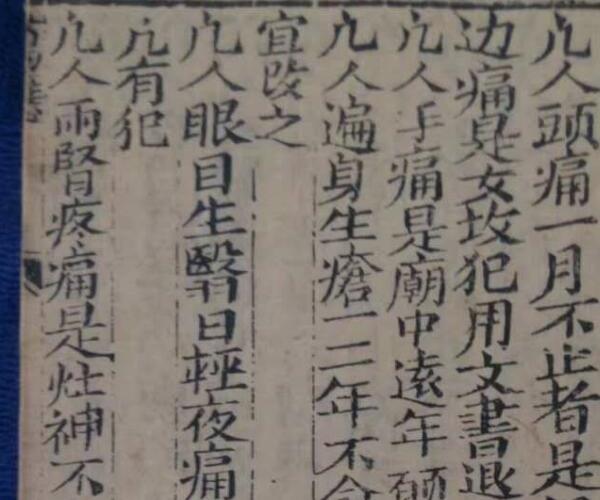 凢人頭痛一月不止者是
边痛是女坟犯用文書退
凢人手痛是廟中遠年
凢人遍身生瘡一二年不
宜改之
凢人眼目生翳日輕夜痛
凢有犯
凢人兩腎疼痛是灶神不